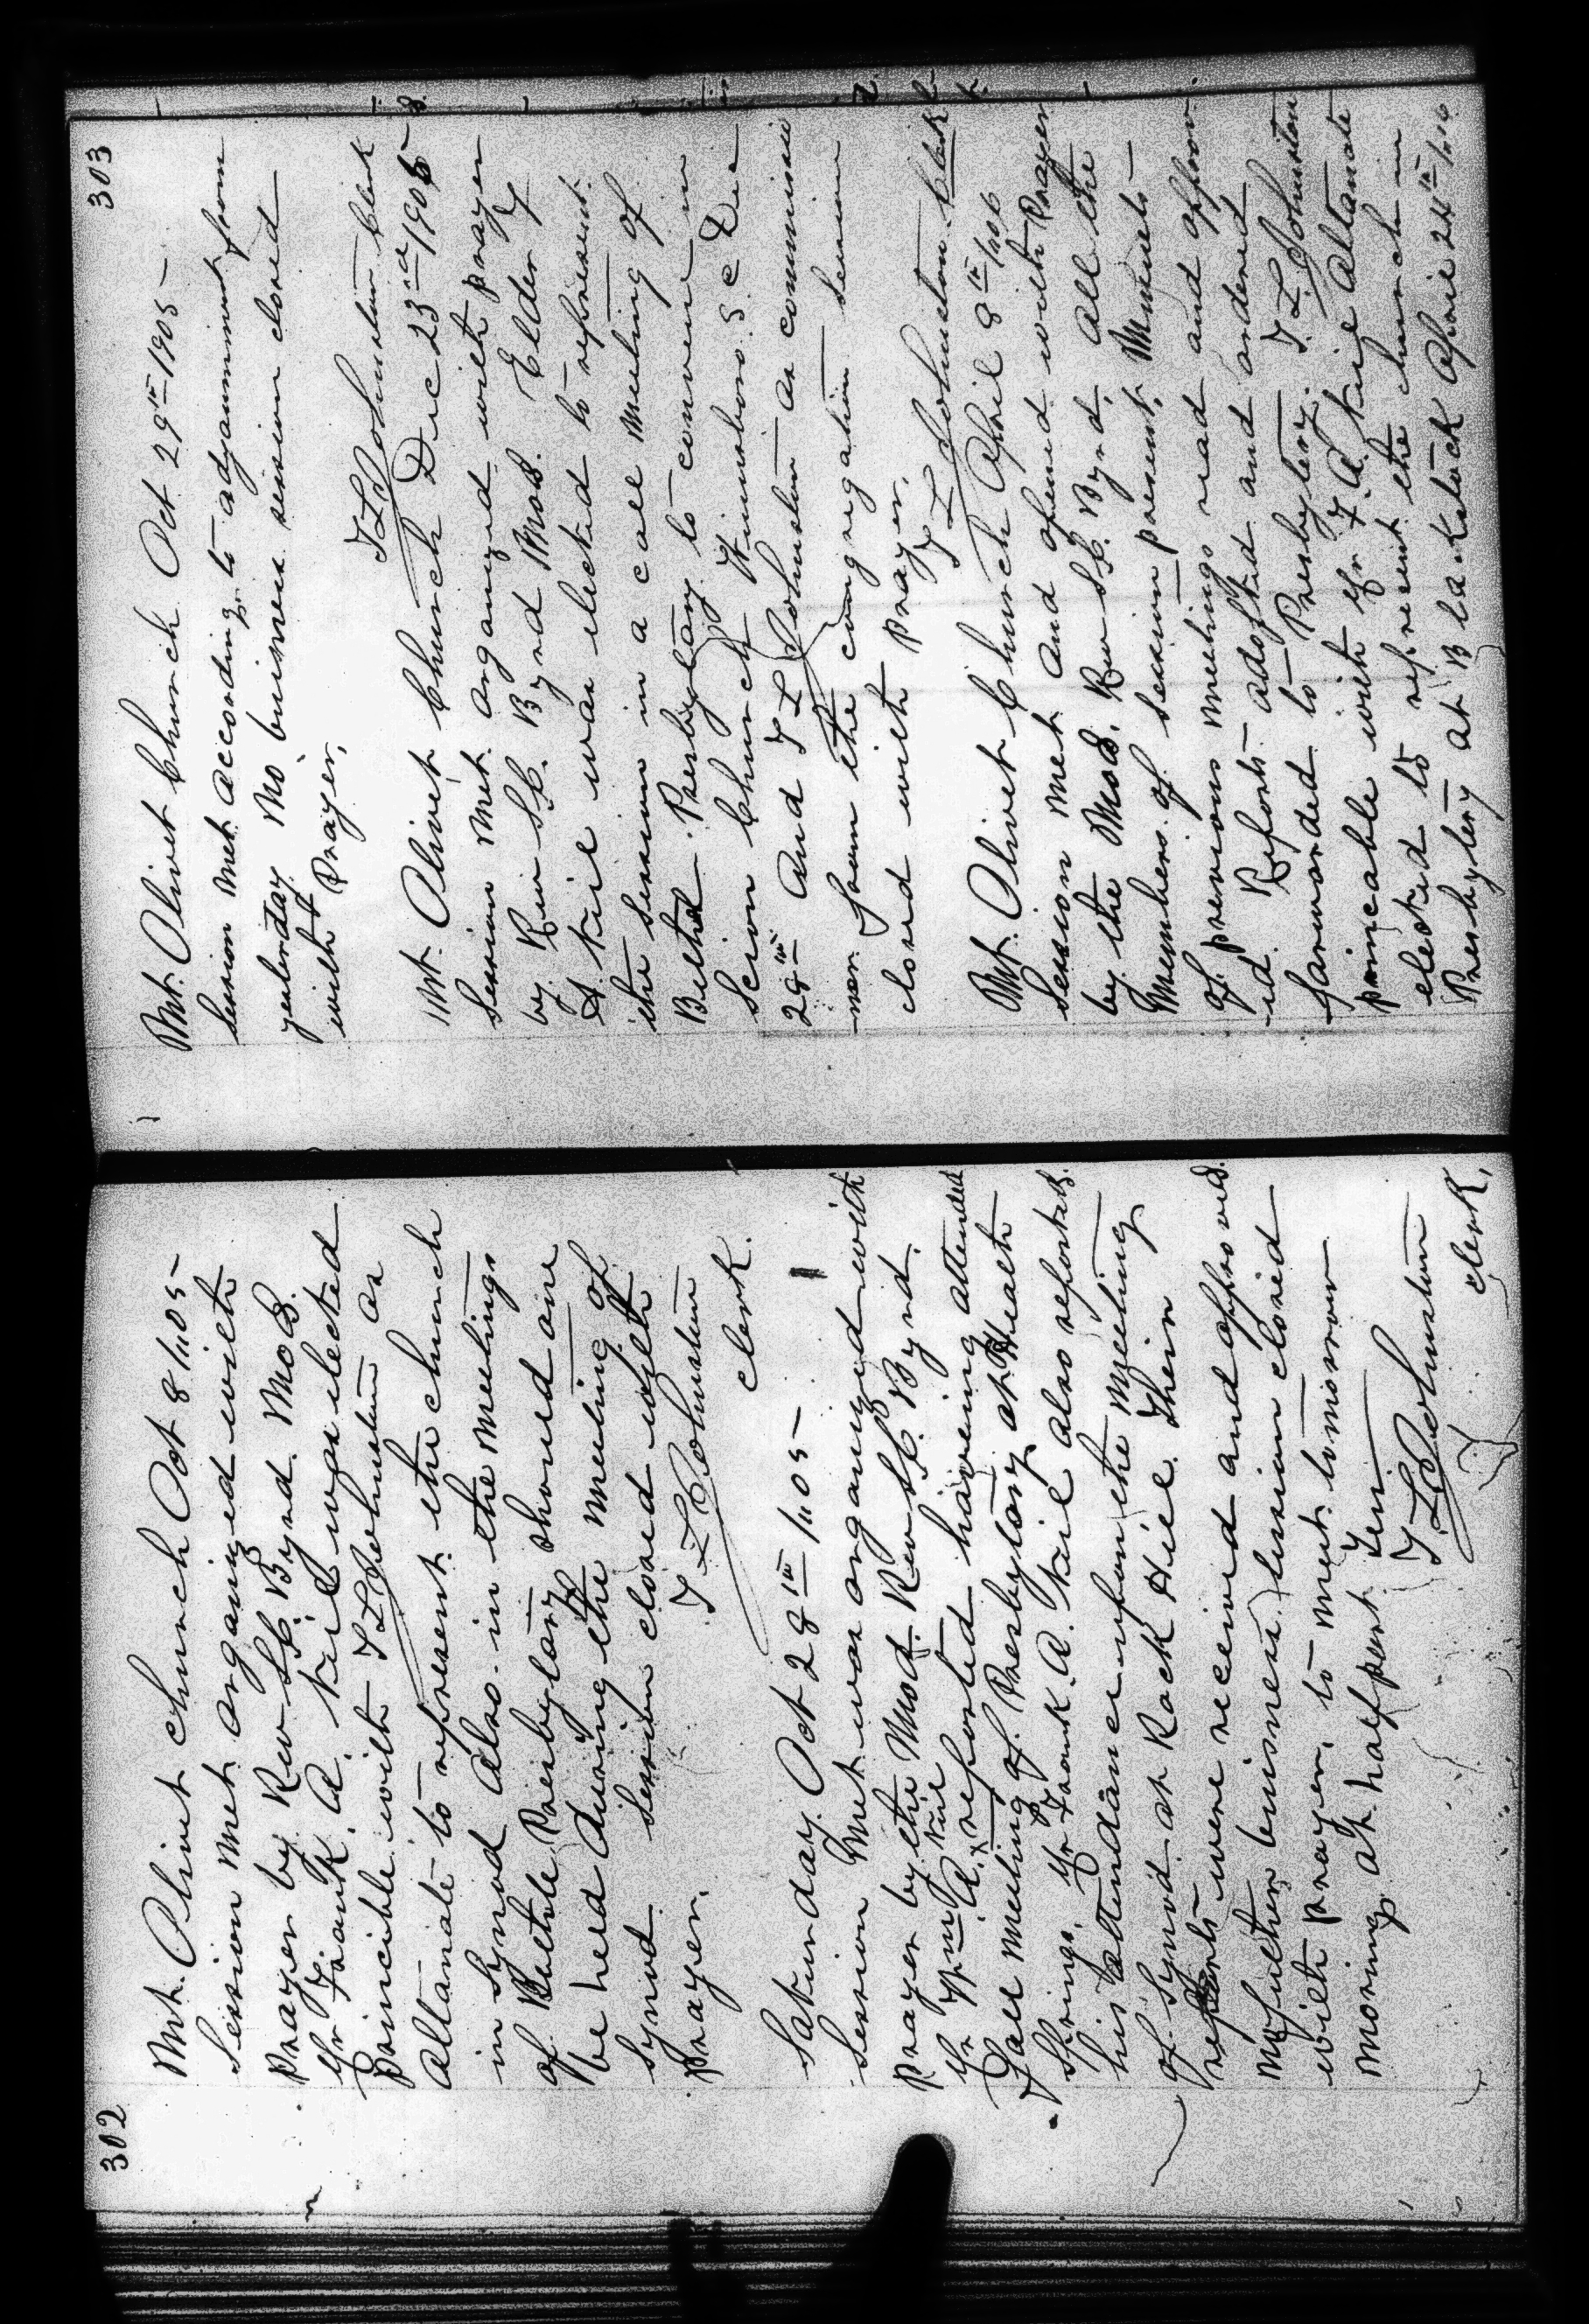 302
Mt. Olivet Church Oct 8/1905
Session met organized with
prayer by Rev S.C. Byrd Mod.
Mr Frank A. Neil was elected
principle with T L Johnston as
altanate to represent the church
in Synod Also in the meetings
of Bethele Presbytary should one
be held during the meeting of
Synod. Session closed with
prayer.
T L Johnston
Clerk.
Saturday Oct 28th/1905
Session met was organized with
prayer by the Mod. Rev S.C. Byrd.
Mr Wm A. Neil reported haveing attended
Fall meeting of Presbytary at Heath
Springs. Mr Frank A. Neil also reported
his attendance upon the meeting
of Synod at Rock Hill. Their
reports were received and approved.
No futher business. Session closed
with prayer, to meet tomorrow
morning at half past Ten
T L Johnston
Clerk,
303
Mt. Olivet Church Oct 29th 1905
Session met according to adjournment from
yesterday. No business session closed
with Prayer.
T L Johnston Clerk
Mt. Olivet Church Dec 23rd 1905
Session met organized with prayer
by Rev S.C. Byrd Mod. Elder F
A Neil was elected to represent
the session in a call meeting of
Bethel Presbytary to convene in
Scion Church Winnsboro S C Dec
28th And T L Johnston as commissio
ner from the congregation Session
closed with prayer.
T L Johnston Clerk
Mt. Olivet Church April 8th/1906
Session met and opened with Prayer
by the Mod. Rev S.C. Byrd, All the
Members of session present. Minuets
of previous meetings read and approv
ed. Report adopted and ordered
farwarded to Presbytery. T. L. Johnston
princable with Mr F. A. Neil Altanate
elected to represent the church in
Presbytery at Blackstock April 24th